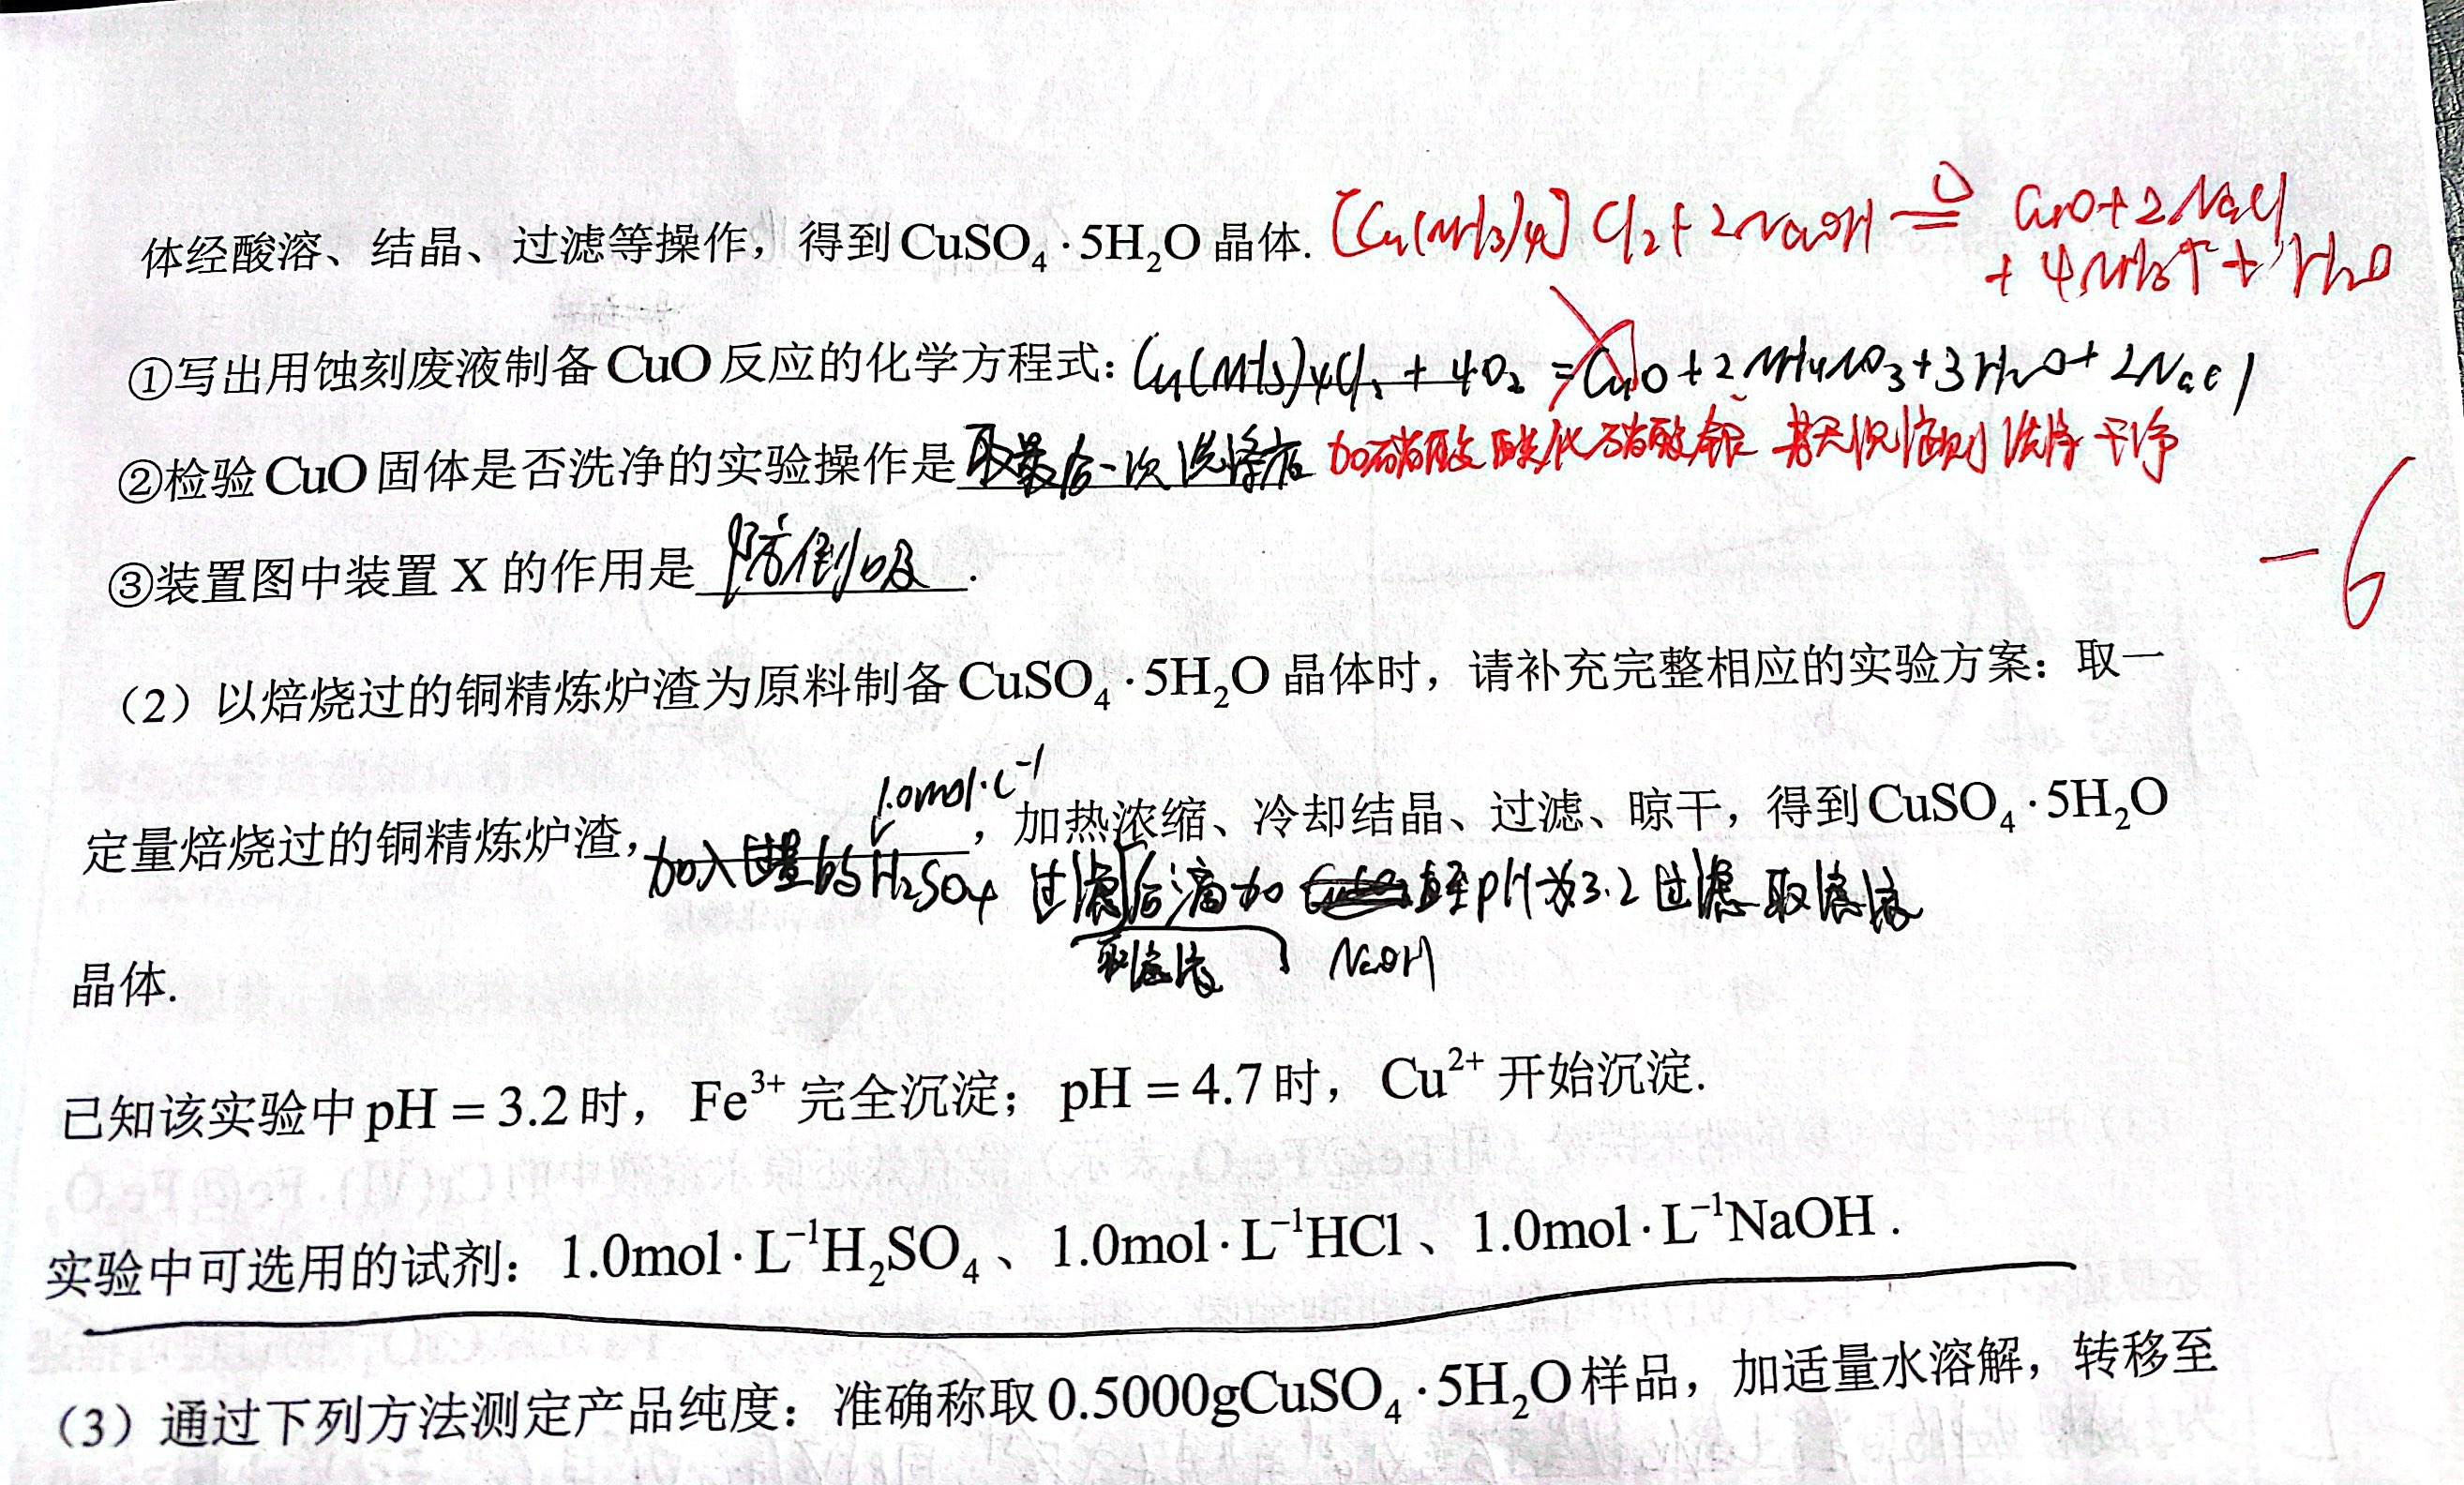 体经酸溶、结晶、过滤等操作，得到CuSO₄·5H₂O晶体. [Cu(NH₃)₄]Cl₂+2NaOH =△= CuO+2NaCl
+4NH₃↑+H₂O
①写出用蚀刻废液制备CuO反应的化学方程式：Cu(NH₃)₄Cl₂+4O₂=CuO+2NH₄NO₃+3H₂O+2NaCl
②检验CuO固体是否洗净的实验操作是取最后一次洗涤液 加硝酸酸化硝酸银 若无沉淀则洗涤干净
③装置图中装置X的作用是防倒吸.
-6
（2）以焙烧过的铜精炼炉渣为原料制备CuSO₄·5H₂O晶体时，请补充完整相应的实验方案：取一
1.0mol·L⁻¹
定量焙烧过的铜精炼炉渣，加入过量的H₂SO₄，加热浓缩、冷却结晶、过滤、晾干，得到CuSO₄·5H₂O
过滤后滴加 至pH为3.2过滤 取滤液
取滤液 NaOH
晶体.
已知该实验中pH=3.2时，Fe³⁺完全沉淀；pH=4.7时，Cu²⁺开始沉淀.
实验中可选用的试剂：1.0mol·L⁻¹H₂SO₄、1.0mol·L⁻¹HCl、1.0mol·L⁻¹NaOH.
（3）通过下列方法测定产品纯度：准确称取0.5000gCuSO₄·5H₂O样品，加适量水溶解，转移至